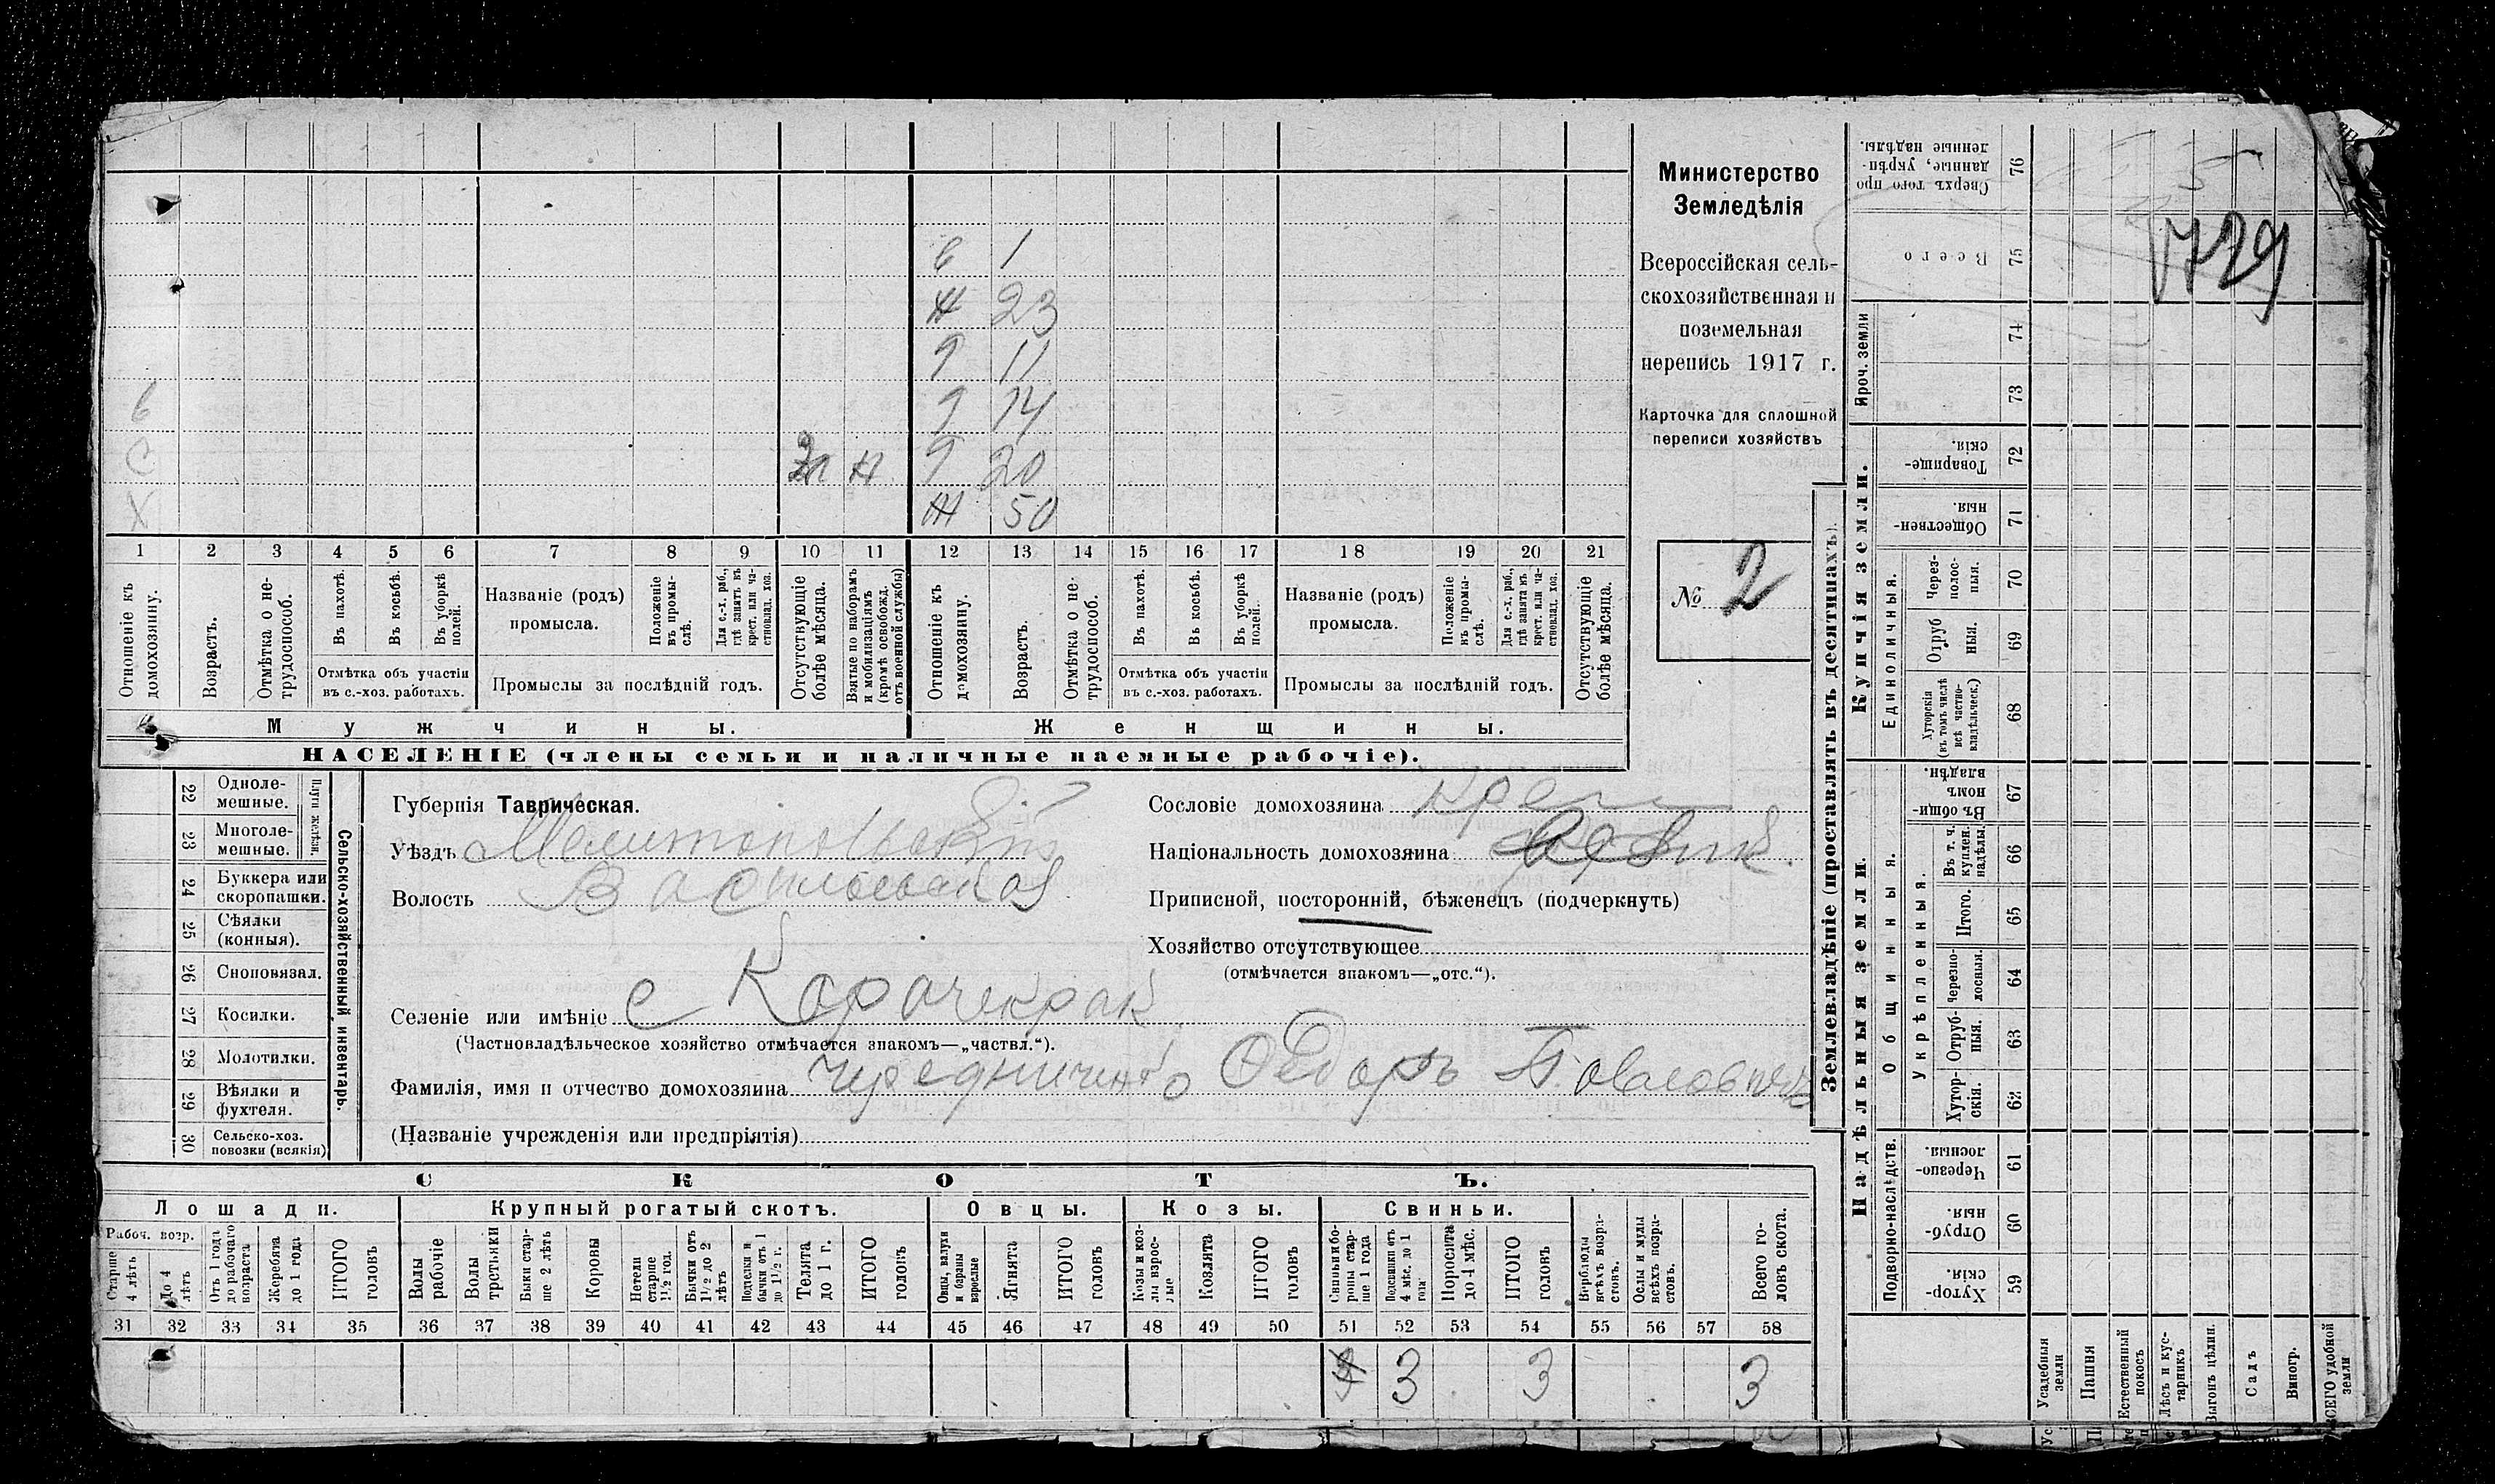 Министерство
Земледѣлія
Всероссійская сель-
скохозяйственная и
поземельная
перепись 1917 г.
Карточка для сплошной
переписи хозяйствъ
№ 2
729
6 1
Н 23
9 11
6 9 14
С Н 9 20
Х Ж 50
1 2 3 4 5 6 7 8 9 10 11 12 13 14 15 16 17 18 19 20 21
Отношеніе къ домохозяину.
Возрастъ.
Отмѣтка о не-трудоспособ.
Въ пахотѣ.
Въ косьбѣ.
Въ уборкѣ полей.
Отмѣтка объ участіи
въ с.-хоз. работахъ.
Названіе (родъ)
промысла.
Положеніе въ промы-слѣ.
Для с.-х. раб., гдѣ занятъ въ крест. или ча-стновлад. хоз.
Промыслы за послѣдній годъ.
Отсутствующіе болѣе мѣсяца.
Взятые по наборамъ и мобилизаціямъ (кромѣ освобожд. отъ военной службы)
Отношеніе къ домохозяину.
Возрастъ.
Отмѣтка о не-трудоспособ.
Въ пахотѣ.
Въ косьбѣ.
Въ уборкѣ полей.
Отмѣтка объ участіи
въ с.-хоз. работахъ.
Названіе (родъ)
промысла.
Положеніе въ промы-слѣ.
Для с.-х. раб., гдѣ занята въ крест. или ча-стновлад. хоз.
Промыслы за послѣдній годъ.
Отсутствующіе болѣе мѣсяца.
Мужчины.
Женщины.
НАСЕЛЕНІЕ (члены семьи и наличные наемные рабочіе).
22 Одноле-мешные.
23 Многоле-мешные.
Плуги желѣзн.
24 Буккера или скоропашки.
25 Сѣялки (конныя).
26 Сноповязал.
27 Косилки.
28 Молотилки.
29 Вѣялки и фухтеля.
30 Сельско-хоз. повозки (всякія)
Сельско-хозяйственный инвентарь.
Губернія Таврическая.
Уѣздъ Мелитопольскій
Волость Васильевская
Селеніе или имѣніе с Карачекрак
(Частновладѣльческое хозяйство отмѣчается знакомъ—„частвл.“).
Фамилія, имя и отчество домохозяина Чередниченко Ѳедоръ Павловичъ
(Названіе учрежденія или предпріятія)
Сословіе домохозяина Крест
Національность домохозяина
Приписной, посторонній, бѣженецъ (подчеркнуть)
Хозяйство отсутствующее
(отмѣчается знакомъ—„отс.“).
СКОТЪ.
Лошади.
Крупный рогатый скотъ.
Овцы.
Козы.
Свиньи.
Рабоч. возр.
Старше 4 лѣтъ
До 4 лѣтъ
Отъ 1 года до рабочаго возраста
Жеребята до 1 года
ИТОГО головъ
Волы рабочіе
Волы третьяки
Быки стар-ше 2 лѣтъ
Коровы
Нетели старше 1½ год.
Бычки отъ 1½ до 2 лѣтъ
Подтелки и бычки отъ 1 до 1½ г.
Телята до 1 г.
ИТОГО головъ
Овцы, валухи и бараны взрослые
Ягнята
ИТОГО головъ
Козы и коз-лы взрос-лые
Козлята
ИТОГО головъ
Свиньи и бо-ровы стар-ше 1 года
Подсвинки отъ 4 мѣс. до 1 года
Поросята до 4 мѣс.
ИТОГО головъ
Верблюды всѣхъ возра-стовъ.
Ослы и мулы всѣхъ возра-стовъ.
Всего го-ловъ скота.
31 32 33 34 35 36 37 38 39 40 41 42 43 44 45 46 47 48 49 50 51 52 53 54 55 56 57 58
3 3 3
Землевладѣніе (проставлять въ десятинахъ).
Надѣльныя земли.
Купчія земли.
Подворно-наслѣдств.
Общинныя.
Укрѣпленныя.
Единоличныя.
Проч. земли
Сверхъ того про данные, укрѣп-ленные надѣлы. 76
Всего 75
74
73
Товарище-скія. 72
Обществен-ныя. 71
Через-полос-ныя. 70
Отруб ныя. 69
Хуторскія (въ томъ числѣ всѣ частно-владѣльческ.) 68
Въ общи-номъ владѣн. 67
Въ т. ч. куплен. надѣлы. 66
Итого. 65
Черезпо-лосныя. 64
Отруб-ныя. 63
Хутор-скія. 62
Черезпо-лосныя. 61
Отруб-ныя. 60
Хутор-скія. 59
Усадебныя земли
Пашня
Естественный покосъ
Лѣсъ и кус-тарникъ
Выгонъ цѣлин.
Садъ
Виногр.
ВСЕГО удобной земли